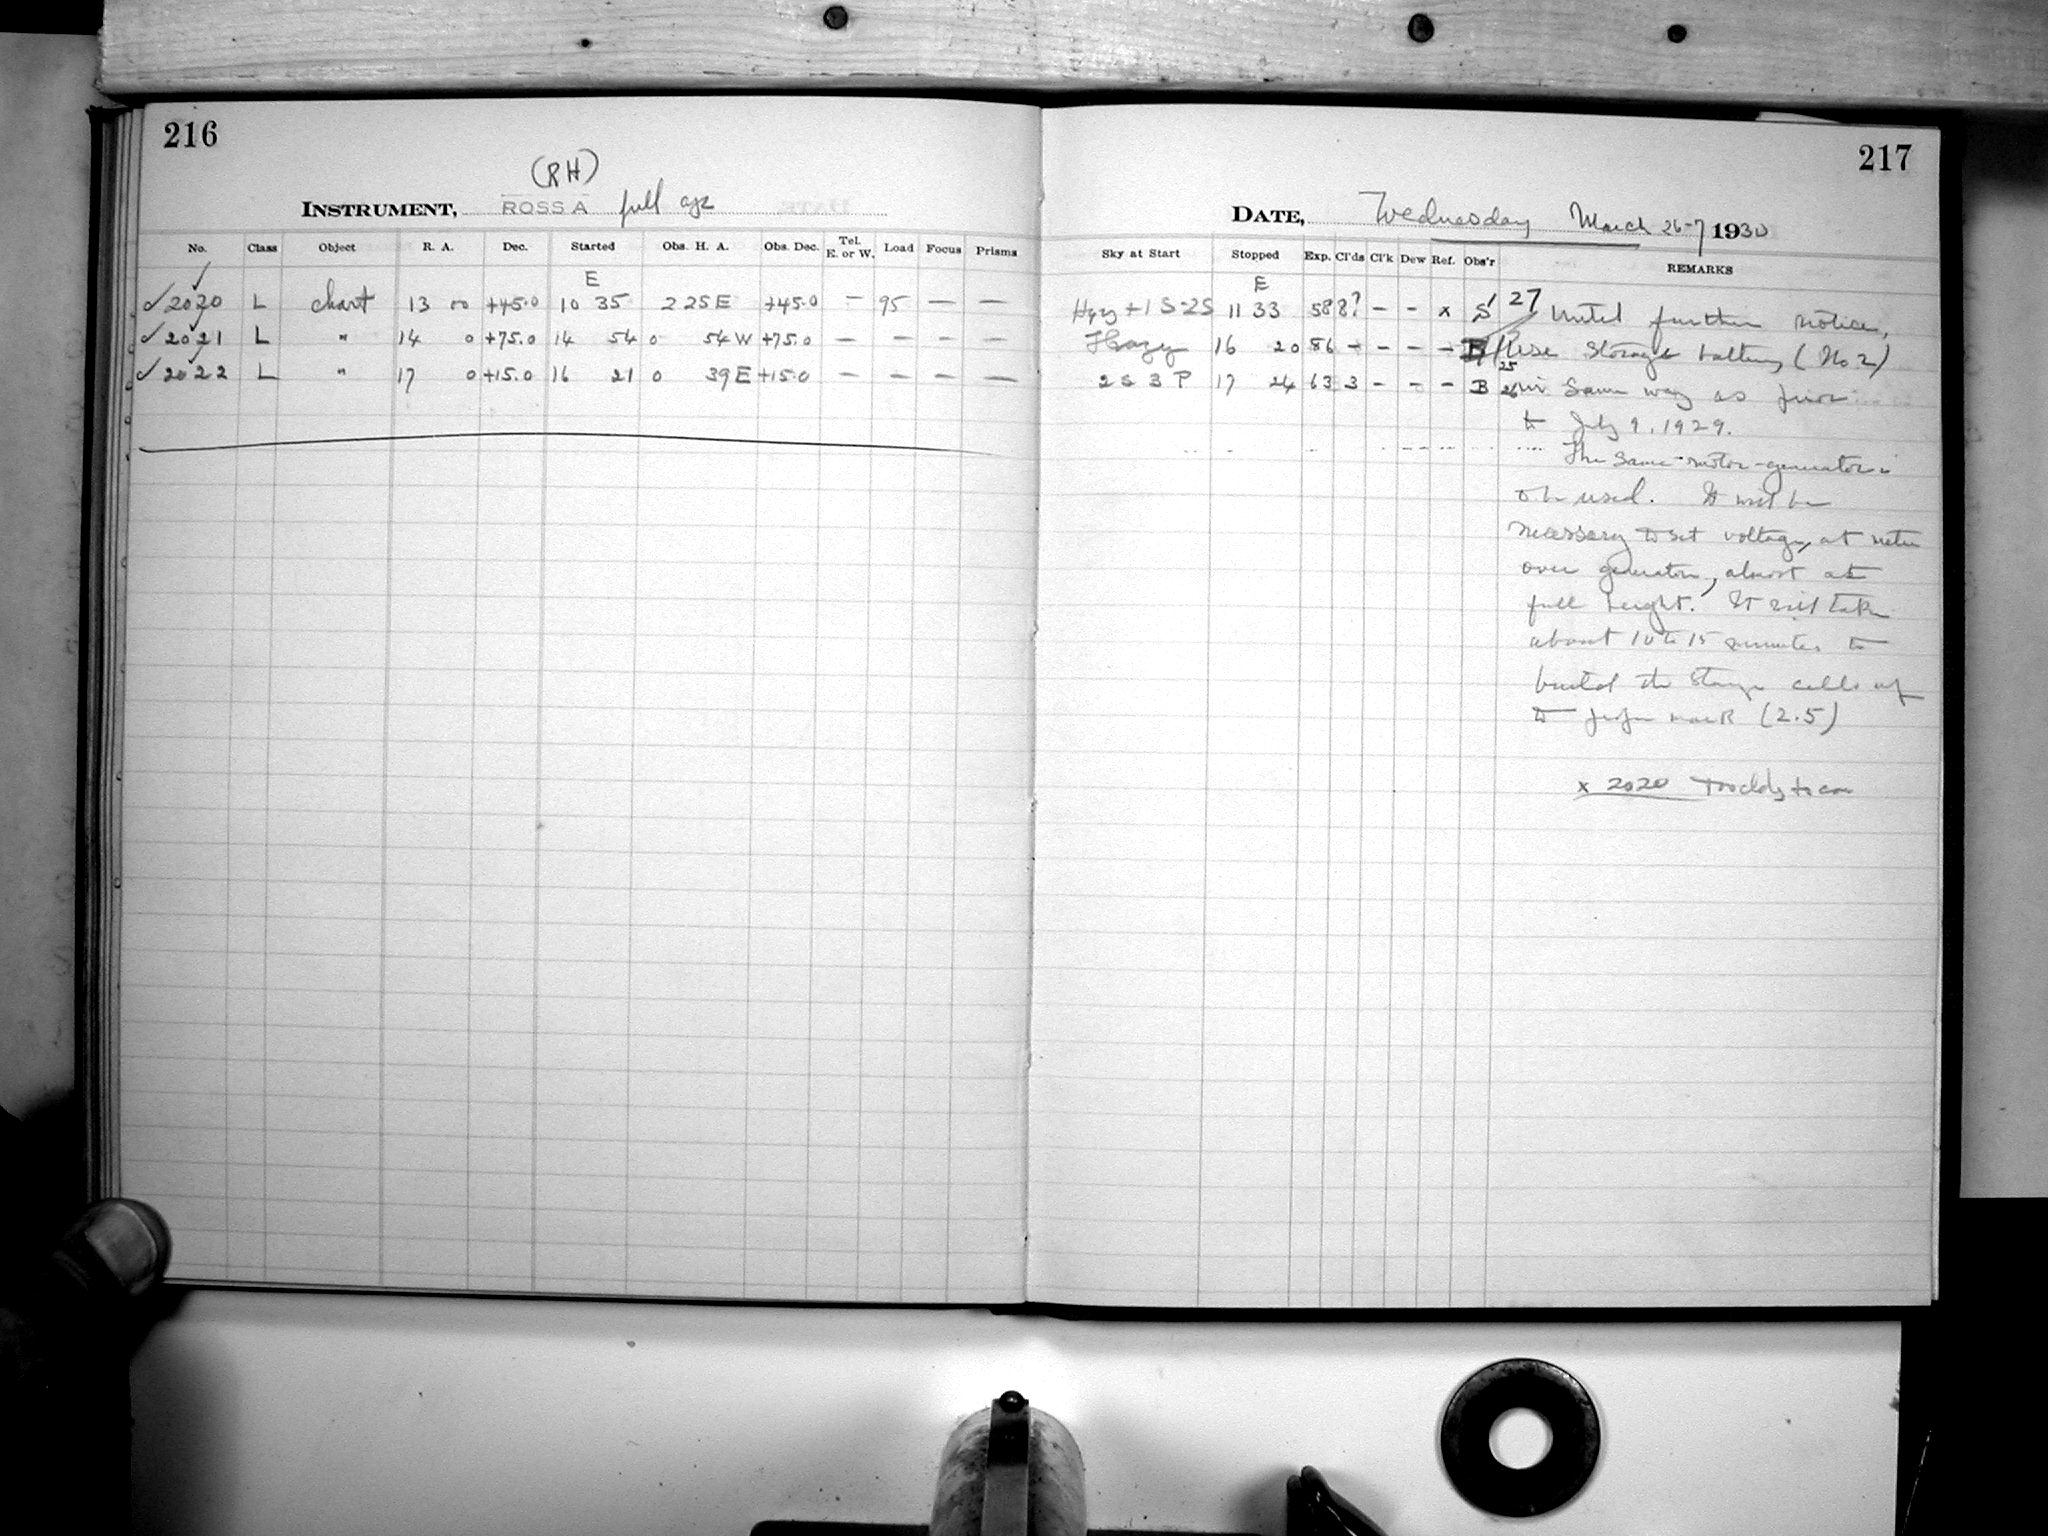 216
(RH)
INSTRUMENT, ROSS A full ape
No. Class Object R. A. Dec. Started Obs. H. A. Obs. Dec. Tel. E. or W. Load Focus Prisms
E
✓ 2020 L chart 13 00 +45.0 10 35 2 25 E +45.0 — 95 — —
✓ 2021 L " 14 0 +75.0 14 54 0 54 W +75.0 — — — —
✓ 2022 L " 17 0 +15.0 16 21 0 39 E +15.0 — — — —
217
DATE, Wednesday March 26-7 1930
Sky at Start Stopped Exp. Cl'ds Cl'k Dew Ref. Obs'r REMARKS
E
+1 S-2S 11 33 58 8? – – x S 27 Until further notice,
Hazy 16 20 86 – – – – Use Storage battery (No. 2)
2 S 3 P 17 24 63 3 – – – B 25 26 in same way as prior
to July 9, 1929.
The same motor-generator
be used. It will be
necessary to set voltage, at meter
over generator, almost at
full height. It will take
about 10 to 15 minutes to
build the storage cells up
to proper mark (2.5)
x 2020